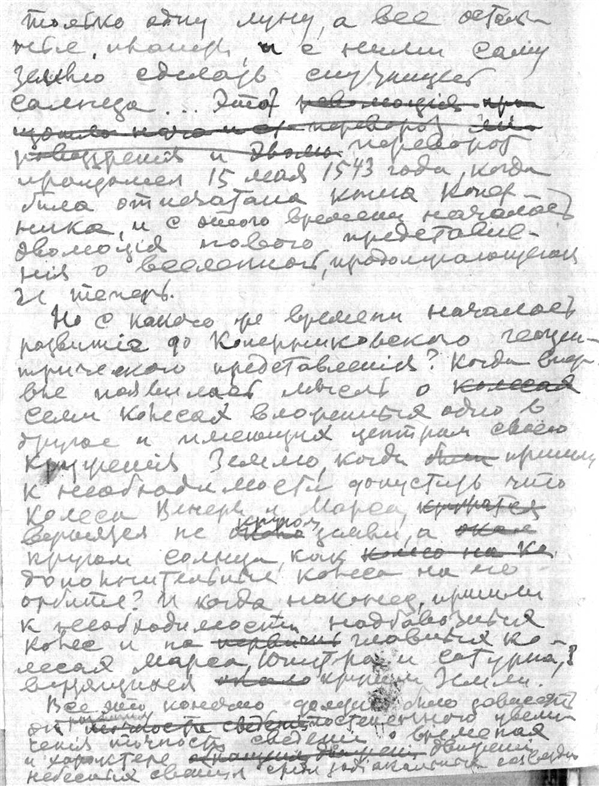 только одну луну, а все осталь-
ные, и с ними саму
землю сделать спутницей
солнца... Этот революція про
переворот
и эволю переворот
произошел 15 мая 1543 года, когда
была отпечатана книга Копер-
ника, и с этого времени началась
эволюція нового представле-
нія о вселенной, продолжающаяся
и теперь.
Но с какого же времени началось
развитіе до Коперниковского геоцен-
трического представленія? Когда впер-
вые появилась мысль о колесах
семи колесах вложенных одно в
другое и имеющих центром своего
круженія Землю, когда были пришли
к необходимости допустить что
колеса Венеры и Марса, кружатся
вертятся не около кругом земли, а около
кругом солнца, как колесо на ко
дополнительные колеса на его
орбите? И когда наконец, пришли
к необходимости надбавочных
колес и на первичных главных ко-
лесах Марса, Юпитера и Сатурна,
вертящихся около кругом Земли.
Все это конечно должно было зависеть
от точность сведений постепенного увели-
ченія точность сведений о временах
и характере движений
небесных светил среди зодіакальных созвездий